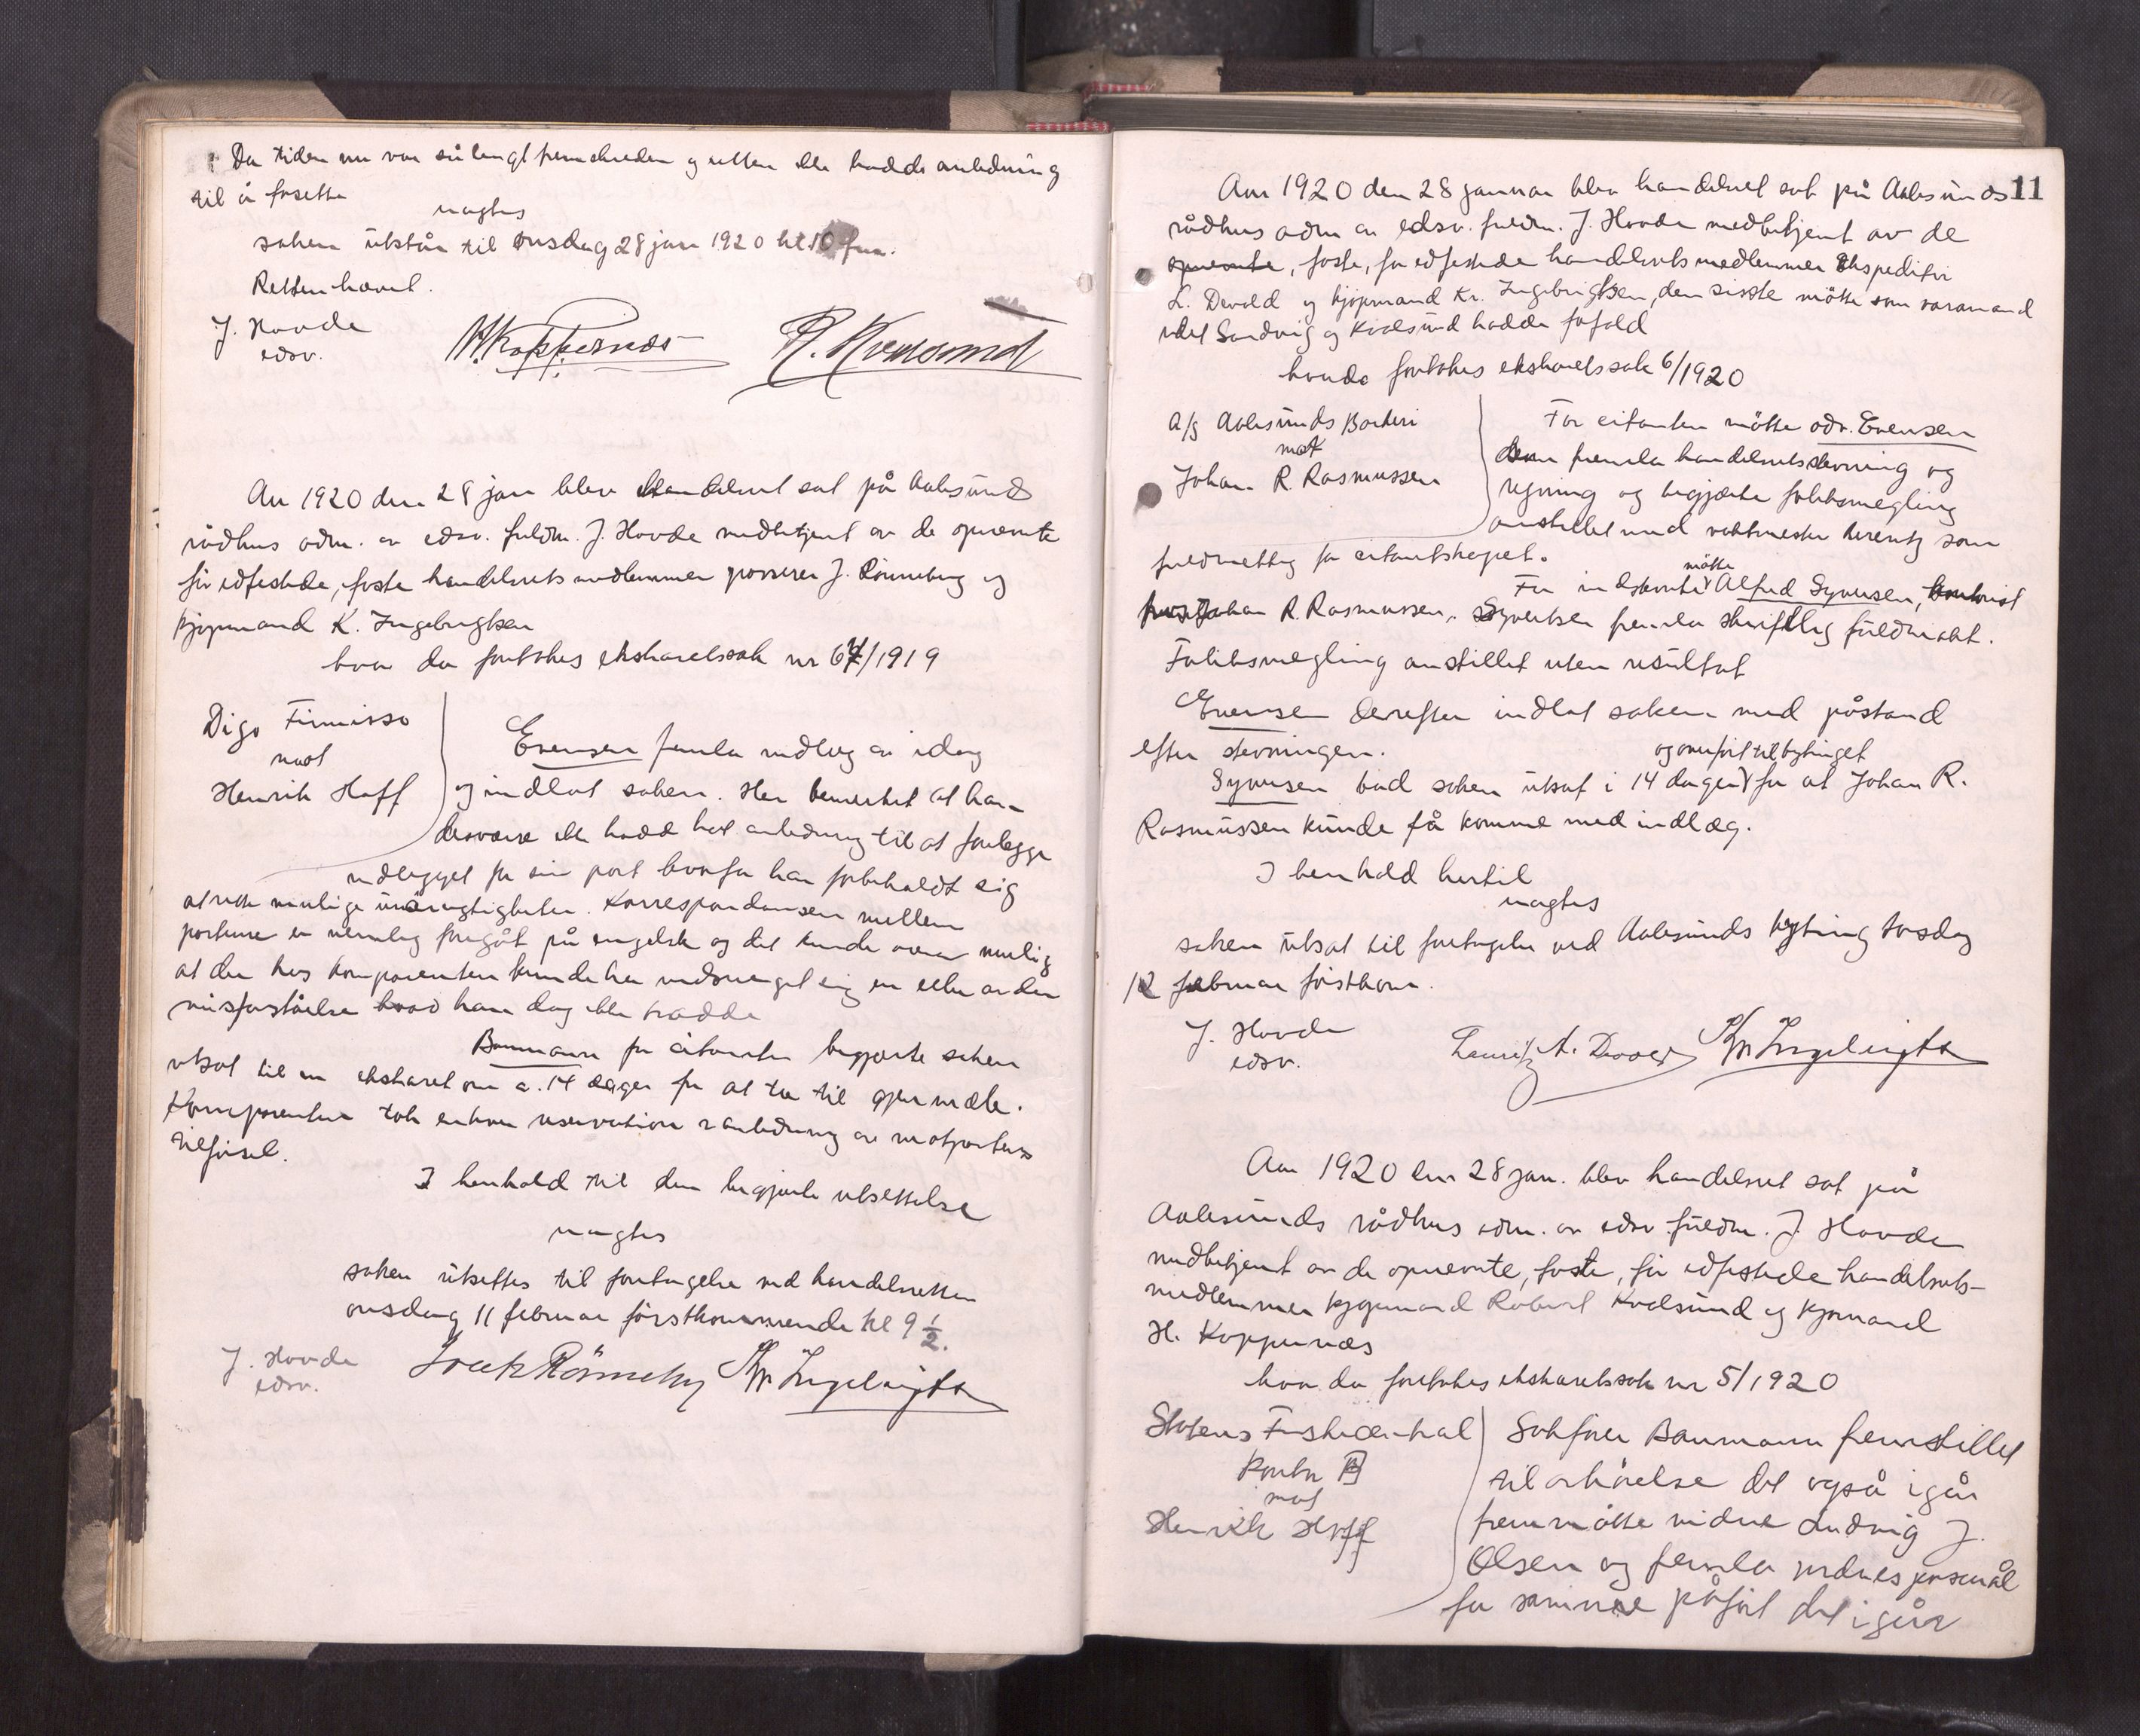 Da tiden nu var så langt fremskreden og retten ikke hadde anledning
til å fosette
vagtes
saken utstår til onsdag 28 jan 1920 kl 10 fm.
Retten hævet.
J. Hovde
edsv.
H. Koppernæs R. Kvalsund
Aar 1920 den 28 jan blev handelsret sat på Aalesunds
rådhus adm. av edsv. fuldm. J. Hovde medbetjent av de opnevnte
før edfestede, faste handelsretsmedlemmer grosserer J. Rønneberg og
kjøpmand K. Ingebrigtsen
hvor da foretokes ekstraretssak nr 64/1919
Digo Finnisso
mot
Henrik Hoff
Evensen fremla indlæg av idag
og indlot saken. Her bemerket at han
desværre ikke hadde hat anledning til at forelægge
indlægget for sin part hvorfor han forbeholdt sig
at rette mulige unøiagtigheter. Korrespondansen mellem
parterne er nemlig foregåt på engelsk og det kunde være mulig
at der hos komparenten kunde ha indsneget sig en eller anden
misforståelse hvad han dog ikke trodde
Baumann for citanten begjærte saken
utsat til en ekstraret om ca. 14 dager for at ta til gjenmæle.
Komparenten tok enhver reservation i anledning av motpartens
tilførsel.
I henhold til den begjærte utsettelse
vagtes
saken utsettes til foretagelse ved handelsretten
onsdag 11 februar førstkommende kl 9 1/2.
J. Hovde
edsv.
Joach Rønneberg Kr Ingebrigtsen
11
Aar 1920 den 28 januar blev handelsret sat på Aalesunds
rådhus adm av edsv. fuldm. J. Hovde medbetjent av de
opnevnte, faste, før edfestede handelsretsmedlemmer Ekspeditør
L. Devold og kjøpmand Kr. Ingebrigtsen, den sisste møtte som varamand
idet Sandvig og Kvalsund hadde forfald
hvorda foretokes ekstraretssak 6/1920
A/S Aalesunds Bøkkeri
mot
Johan R. Rasmussen
For citanten møtte adv. Evensen
som fremla handelsretsstevning og
regning og begjærte forliksmegling
anstillet med vaktmester Berentz som
fuldmektig for citantskapet.
For indstevnte møtte Alfred Syversen, kontorist
hos Johan R. Rasmussen. Syvertsen fremla skriftlig fuldmakt.
Forliksmegling anstillet uten resultat
Evensen derefter indlot saken med påstand
efter stevningen.
og overført til bytinget
Syversen bad saken utsat i 14 dager for at Johan R.
Rasmussen kunde få komme med indlæg.
I henhold hertil
vagtes
saken utsat til foretagelse ved Aalesunds byting torsdag
12 februar førstkom.
J. Hovde
edsv.
Lauritz A. Devold Kr Ingebrigtsen
Aar 1920 den 28 jan. blev handelsret sat på
Aalesunds rådhus adm. av edsv. fuldm. J. Hovde
medbetjent av de opnevnte, faste, før edfestede handelsrets-
medlemmer kjøpmand Robert Kvalsund og kjømand
H. Koppernæs
hvor da foretokes ekstraretssak nr 5/1920
Statens Fiskicentral
Kontor B
mot
Henrik Hoff
Sakfører Baumann fremstillet
til avhørelse det også igår
fremmøtte vidne Ludvig J.
Olsen og fremla vidnespørsmål
for samme påført det igår